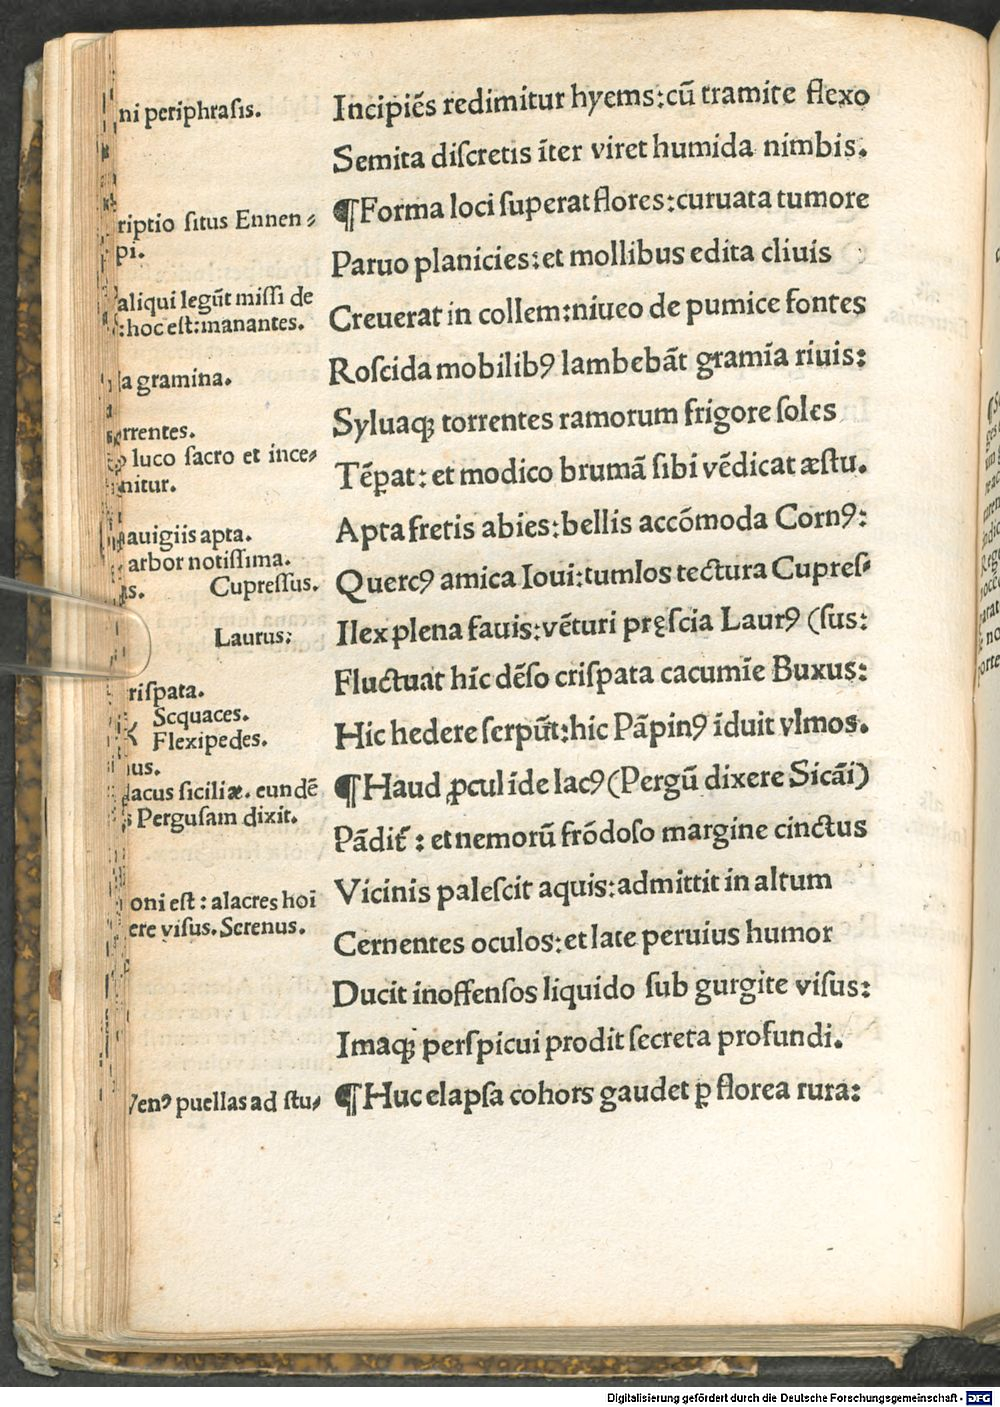 ni periphrasis.
riptio situs Ennen⸗
pi.
aliqui legūt missi de
:hoc est:manantes.
a gramina.
rrentes.
luco sacro et ince⸗
nitur.
auigiis apta.
arbor notissima.
s. Cupressus.
Laurus:
rispata.
Sequaces.
Flexipedes.
us.
lacus siciliæ. eundē
s Pergusam dixit.
oni est : alacres hoī
ere visus. Serenus.
Venꝰ puellas ad stu⸗
Incipiēs redimitur hyems:cū tramite flexo
Semita discretis īter viret humida nimbis.
¶Forma loci superat flores:curuata tumore
Paruo planicies:et mollibus edita cliuis
Creuerat in collem:niueo de pumice fontes
Roscida mobilibꝰ lambebāt gramīa riuis:
Syluaqꝫ torrentes ramorum frigore soles
Tēꝑat: et modico brumā sibi vēdicat æstu.
Apta fretis abies:bellis accōmoda Cornꝰ:
Quercꝰ amica Ioui:tumlos tectura Cupres⸗
Ilex plena fauis:vēturi pręscia Laurꝰ (sus:
Fluctuat hīc dēso crispata cacumīe Buxus:
Hic hedere serpūt:hic Pāpinꝰ īduit vlmos.
¶Haud ꝓcul īde lacꝰ (Pergū dixere Sicāi)
Pādit᷑ : et nemorū frōdoso margine cinctus
Vicinis palescit aquis:admittit in altum
Cernentes oculos:et late peruius humor
Ducit inoffensos liquido sub gurgite visus:
Imaqꝫ perspicui prodit secreta profundi.
¶Huc elapsa cohors gaudet ꝑ florea rura:
Digitalisierung gefördert durch die Deutsche Forschungsgemeinschaft - DFG